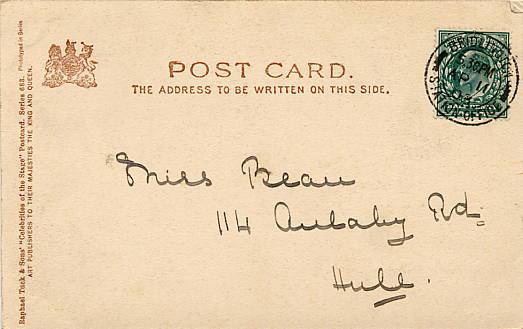 POST CARD.
THE ADDRESS TO BE WRITTEN ON THIS SIDE.
Miss Beau
114 Anlaby Rd
Hull.
Raphael Tuck & Sons' "Celebrities of the Stage" Postcard. Series 653. Phototyped in Berlin
ART PUBLISHERS TO THEIR MAJESTIES THE KING AND QUEEN.